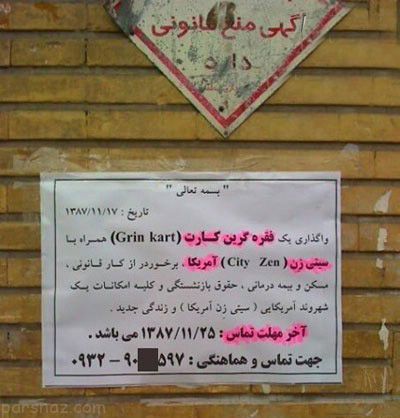 آگهی منع قانونی
دارد
" بسمه تعالی "
تاریخ : ۱۳۸۷/۱۱/۱۷
واگذاری یک فقره گرین کارت (Grin kart) همراه با
سیتی زن ( City Zen) آمریکا ، برخوردر از کار قانونی ،
مسکن و بیمه درمانی ، حقوق بازنشستگی و کلیه امکانات یک
شهروند آمریکایی ( سیتی زن آمریکا ) و زندگی جدید .
آخر مهلت تماس : ۱۳۸۷/۱۱/۲۵ می باشد .
جهت تماس و هماهنگی : ۵۹۷ ۹۰ – ۰۹۳۲
parsnaz.com